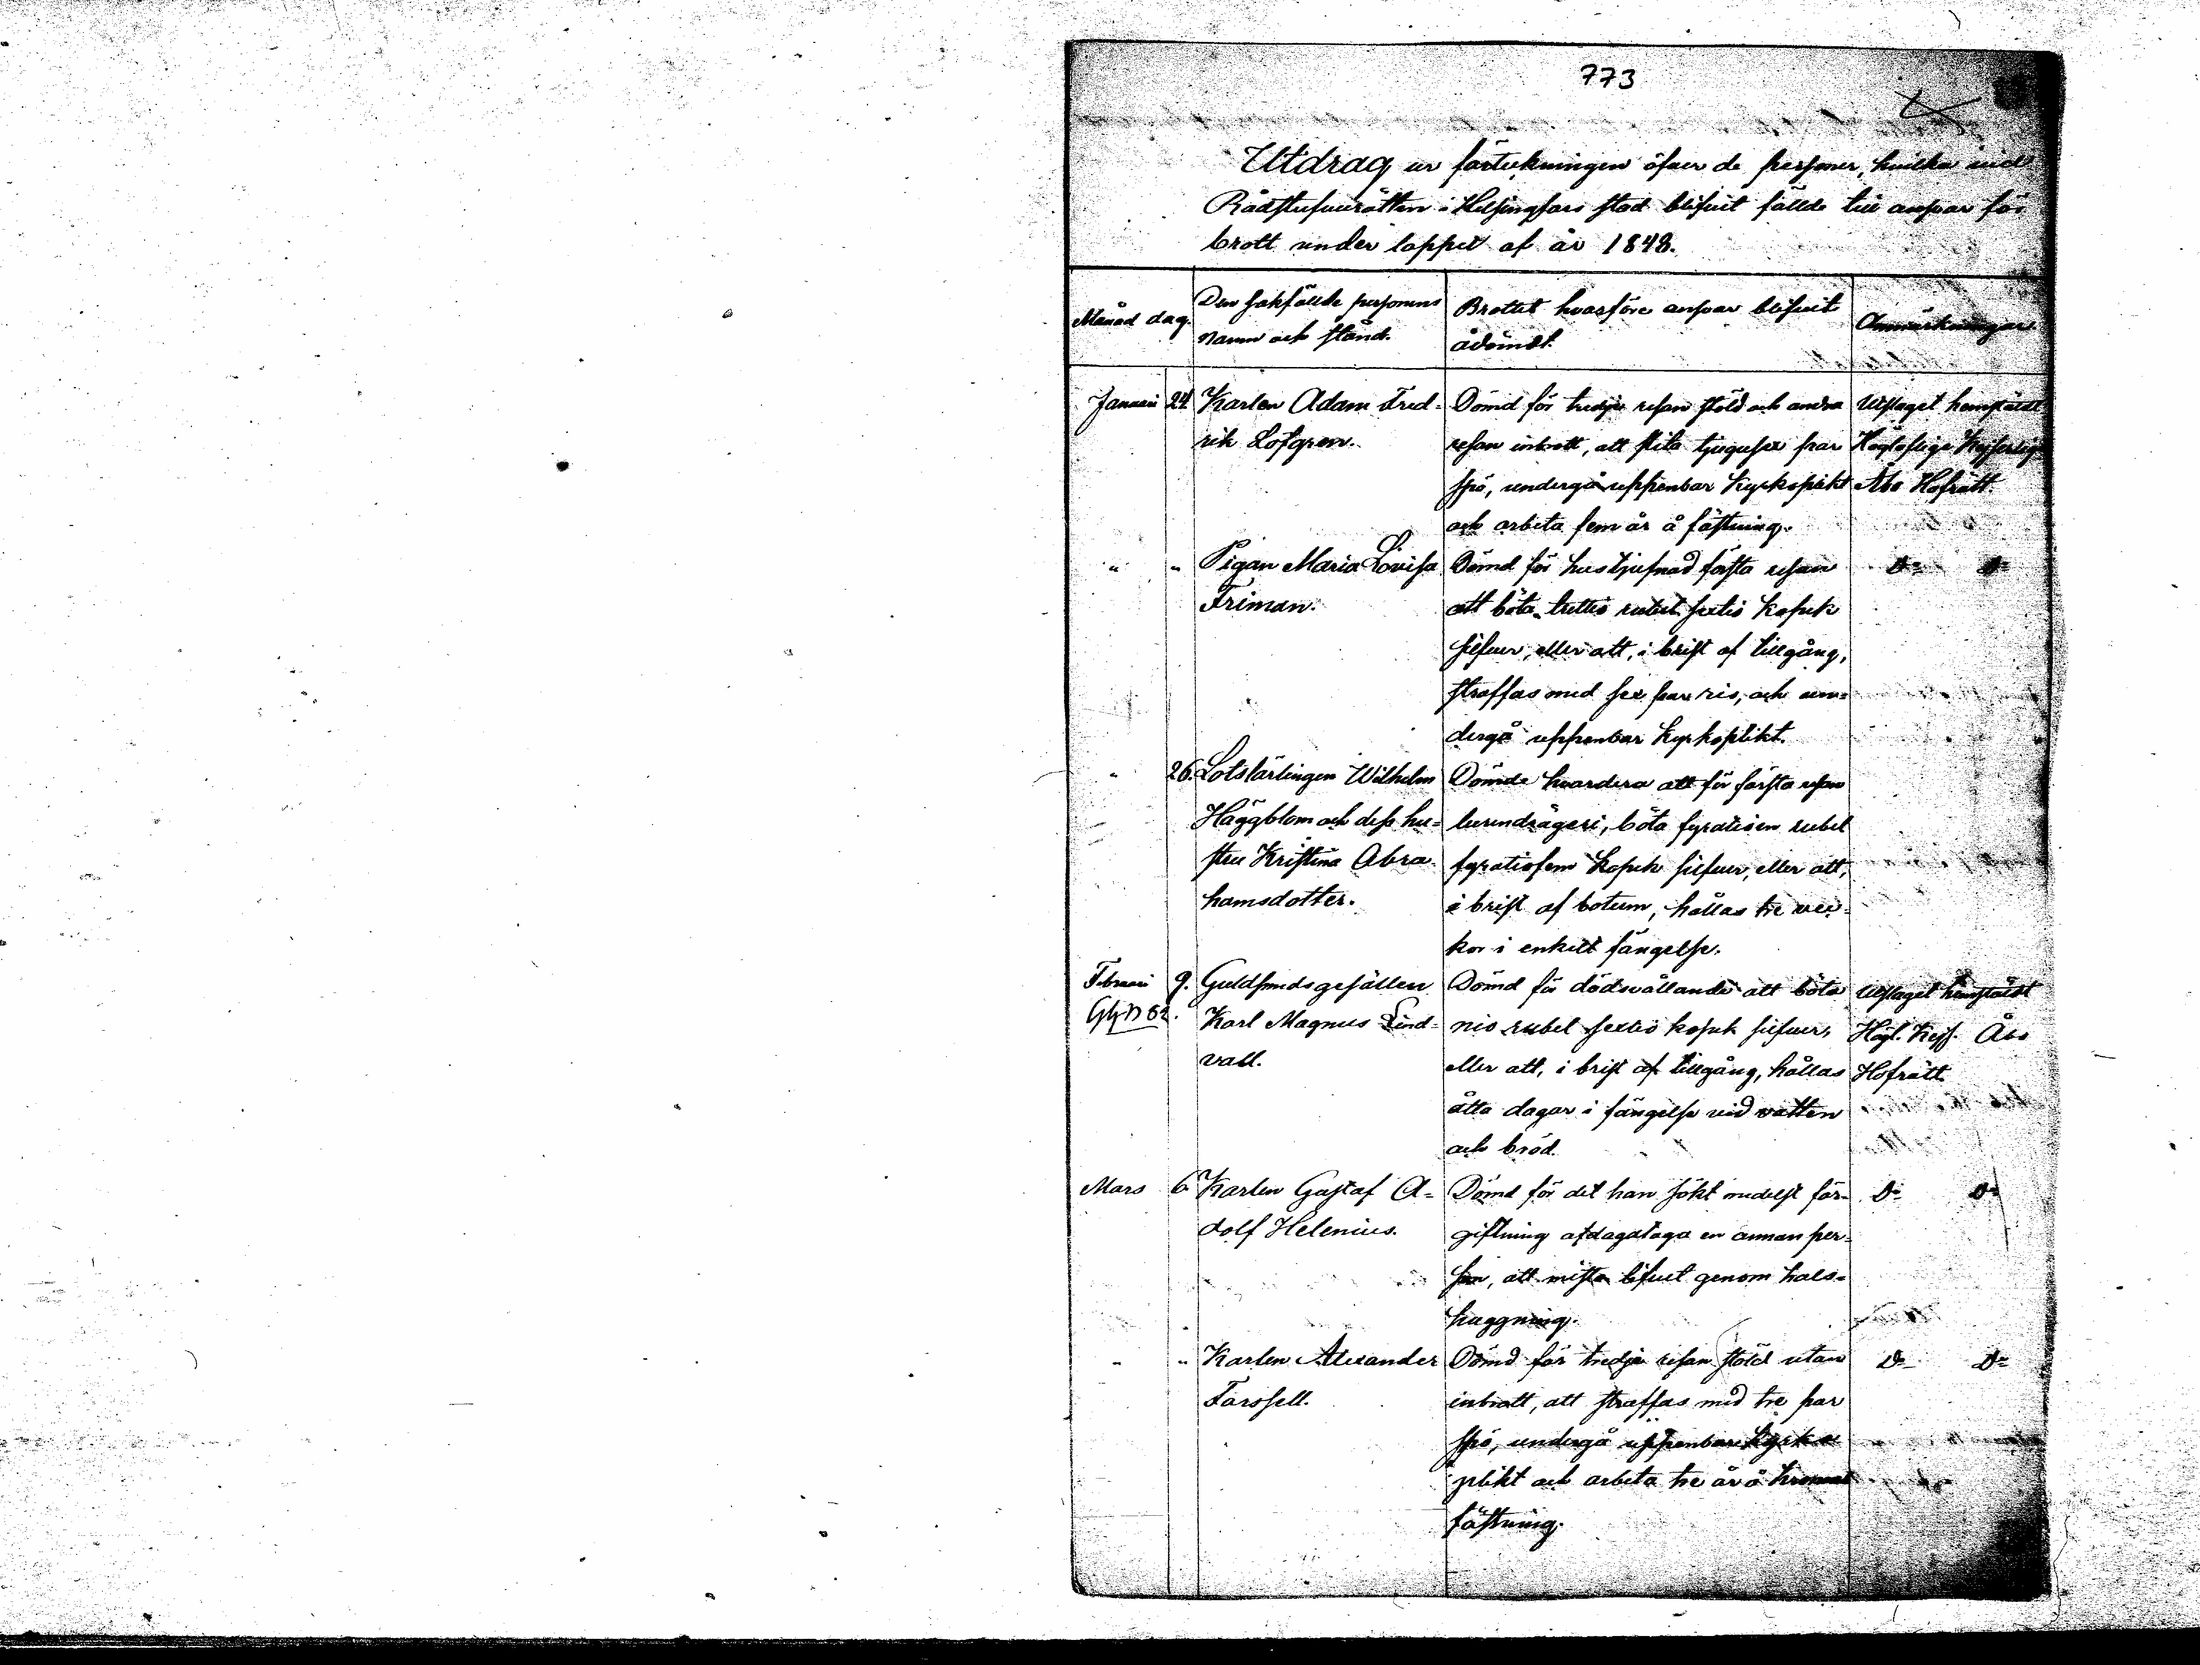 773
Utdrag ur förteckningen öfver de personer, hvilka vid
Rådstufvurätten i Helsingfors stad blifvit fällde till ansvar för
brott under loppet af år 1848.
Månad dag.
Den sakfällde personens
namn och stånd.
Brottet hvarföre ansvar blifvit
ådömdt.
Anmärkningar
Januari 24 Karlen Adam Fred-
rik Lofgren.
Dömd för tredje resan stöld och andra
resan inbrott, att slita tjugusex par
spö, undergå uppenbar kyrkoplikt
och arbeta fem år å fästning.
Utslaget hemstäldt
Högloflige Kejserlige
Åbo Hofrätt.
" " Pigan Maria Lovisa
Friman.
Dömd för hustjufnad första resan
att böta trettio rubel sextio kopek
silfver, eller att, i brist af tillgång,
straffas med sex par ris, och un-
dergå uppenbar kyrkoplikt.
D:o D:o
" 26. Lotslärlingen Wilhelm
Häggblom och dess hu-
stru Kristina Abra-
hamsdotter.
Dömde hvardera att för första resan
lurendrägeri, böta fyratioen rubel
fyratiofem kopek silfver, eller att,
i brist af botum, hållas tre vec-
kor i enkelt fängelse.
Februari 9. Guldsmedsgesällen
Karl Magnus Lind-
vall.
Dömd för dödsvållande att böta
nio rubel sextio kopek silfver,
eller att, i brist af tillgång, hållas
åtta dagar i fängelse vid vatten
och bröd.
Utslaget hemstäldt
Högl. Kejs. Åbo
Hofrätt
Mars 6 Karlen Gustaf A-
dolf Helenius.
Dömd för det han sökt medelst för-
giftning afdagataga en annan per-
son, att mista lifvet genom hals-
huggning.
D:o D:o
" " Karlen Alexander
Forssell.
Dömd för tredje resan stöld utan
inbrott, att straffas med tre par
spö, undergå uppenbar kyrko
plikt och arbeta tre år å
fästning.
D:o D:o